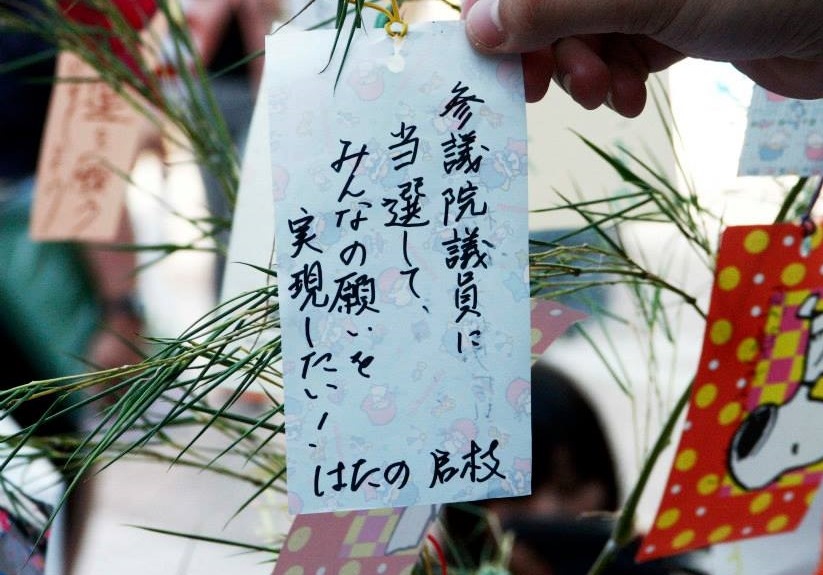 参議院議員に
当選して、
みんなの願いを
実現したい!
はたの 君枝